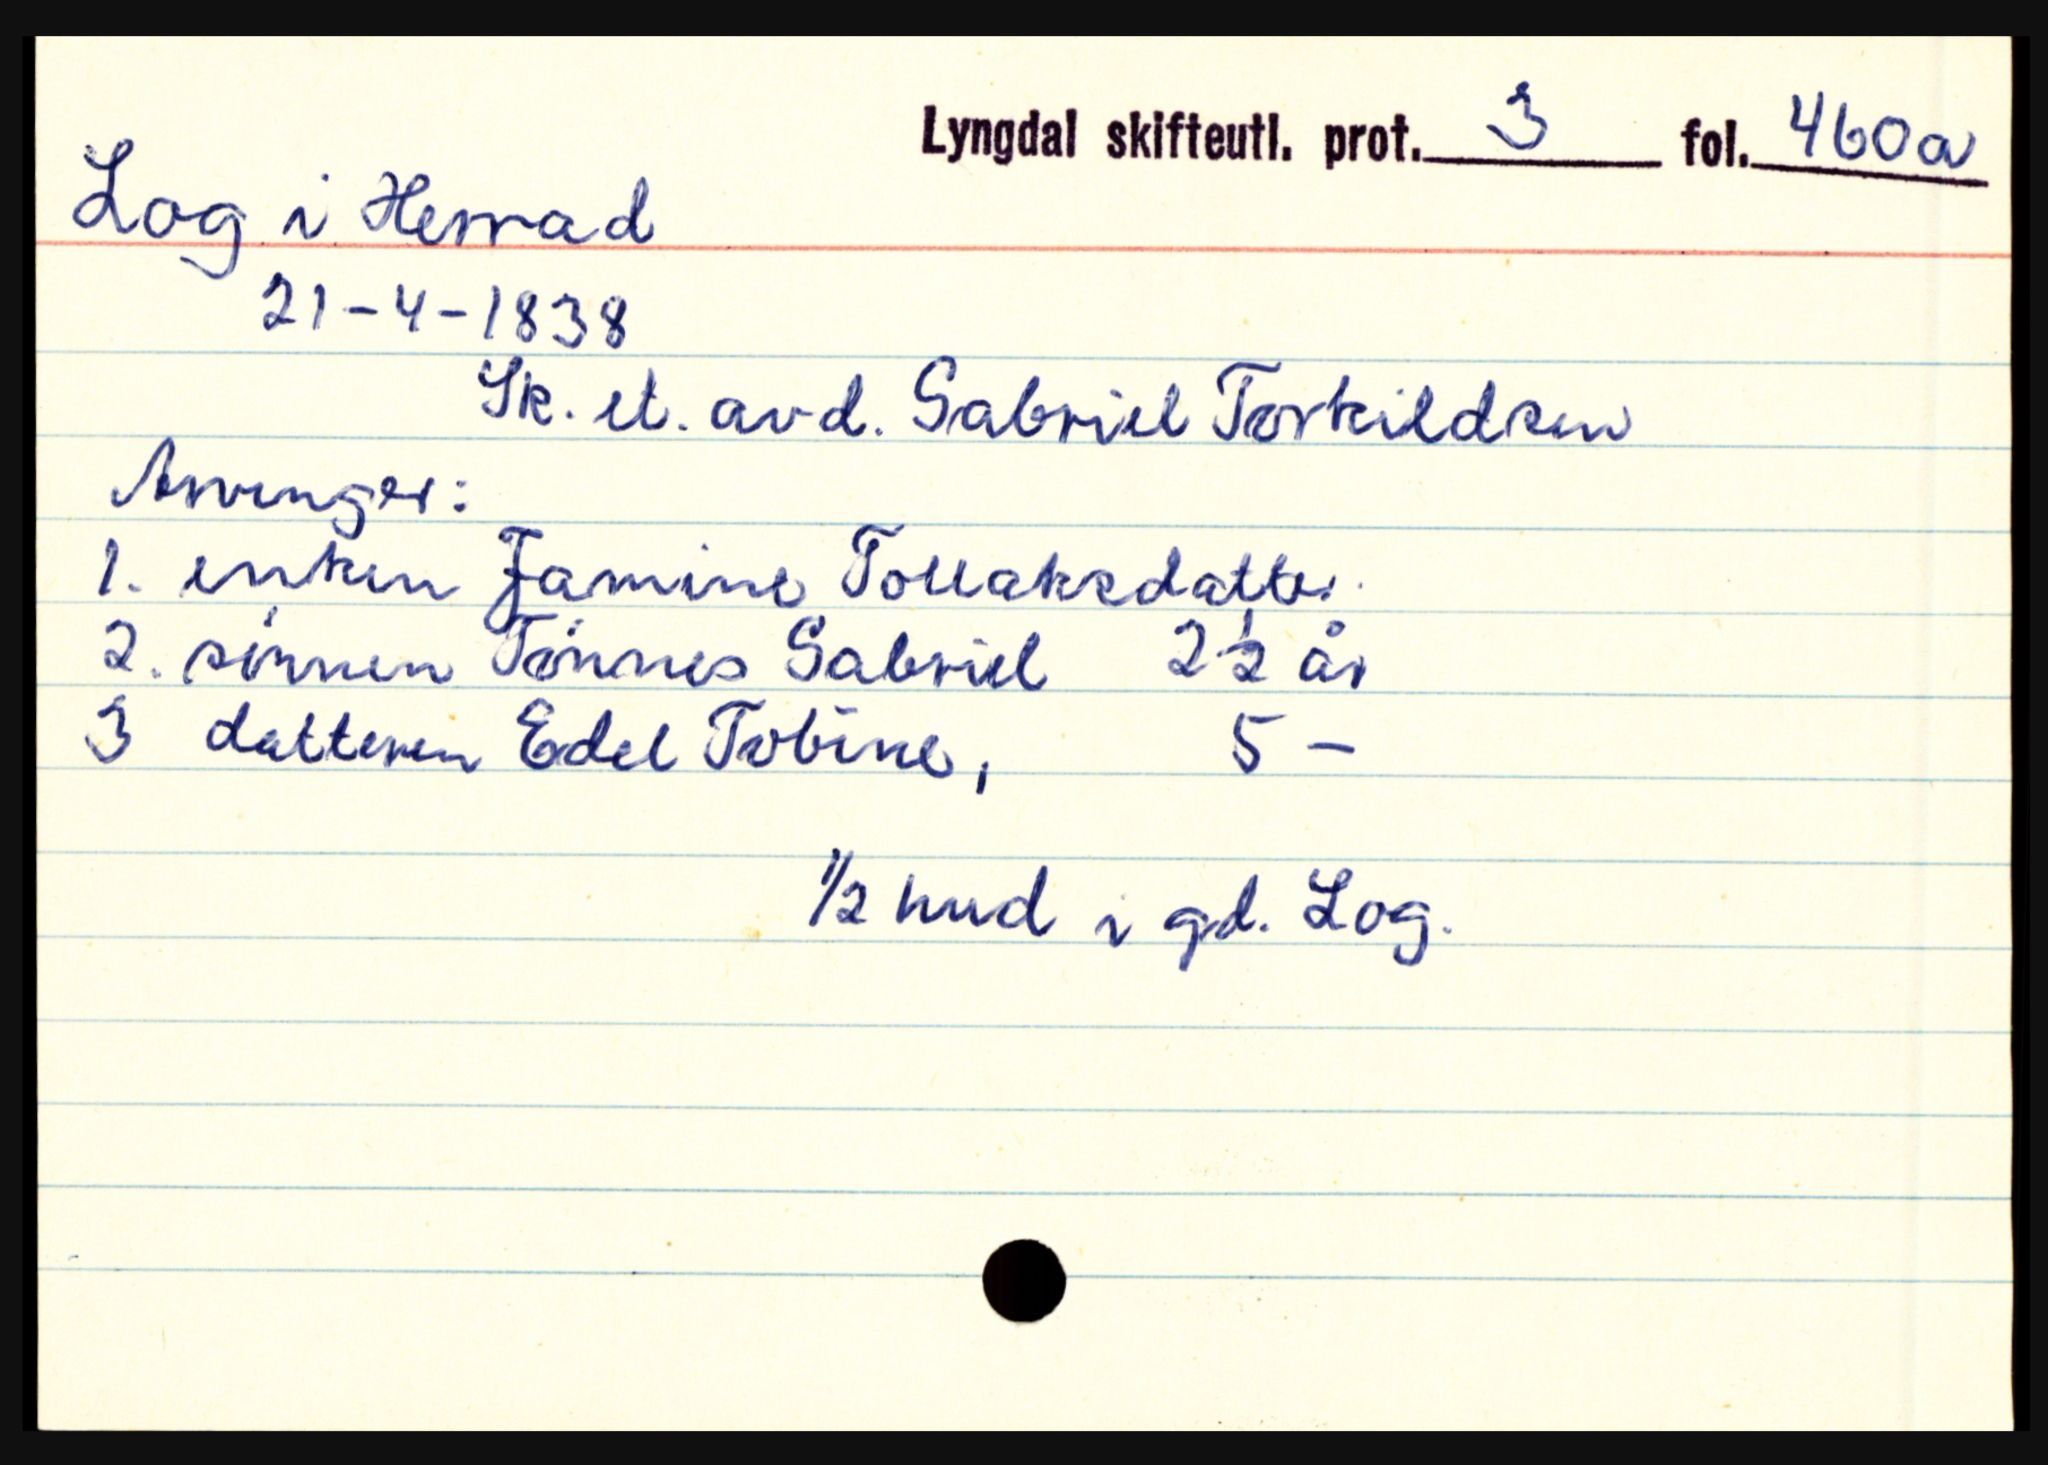 Lyngdal skifteutl. prot. 3 fol. 460a
Log i Herrad
21-4-1838
Sk. et. avd. Gabriel Torkildsen
Arvinger:
1. enken Jamine Tollaksdatter.
2. sønnen Tønnes Gabriel 2 1/2 år
3 datteren Edel Tobine, 5 –
1/2 hud i gd. Log.